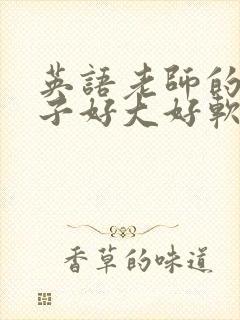 英語老師的
子好大好軟
香草的味道